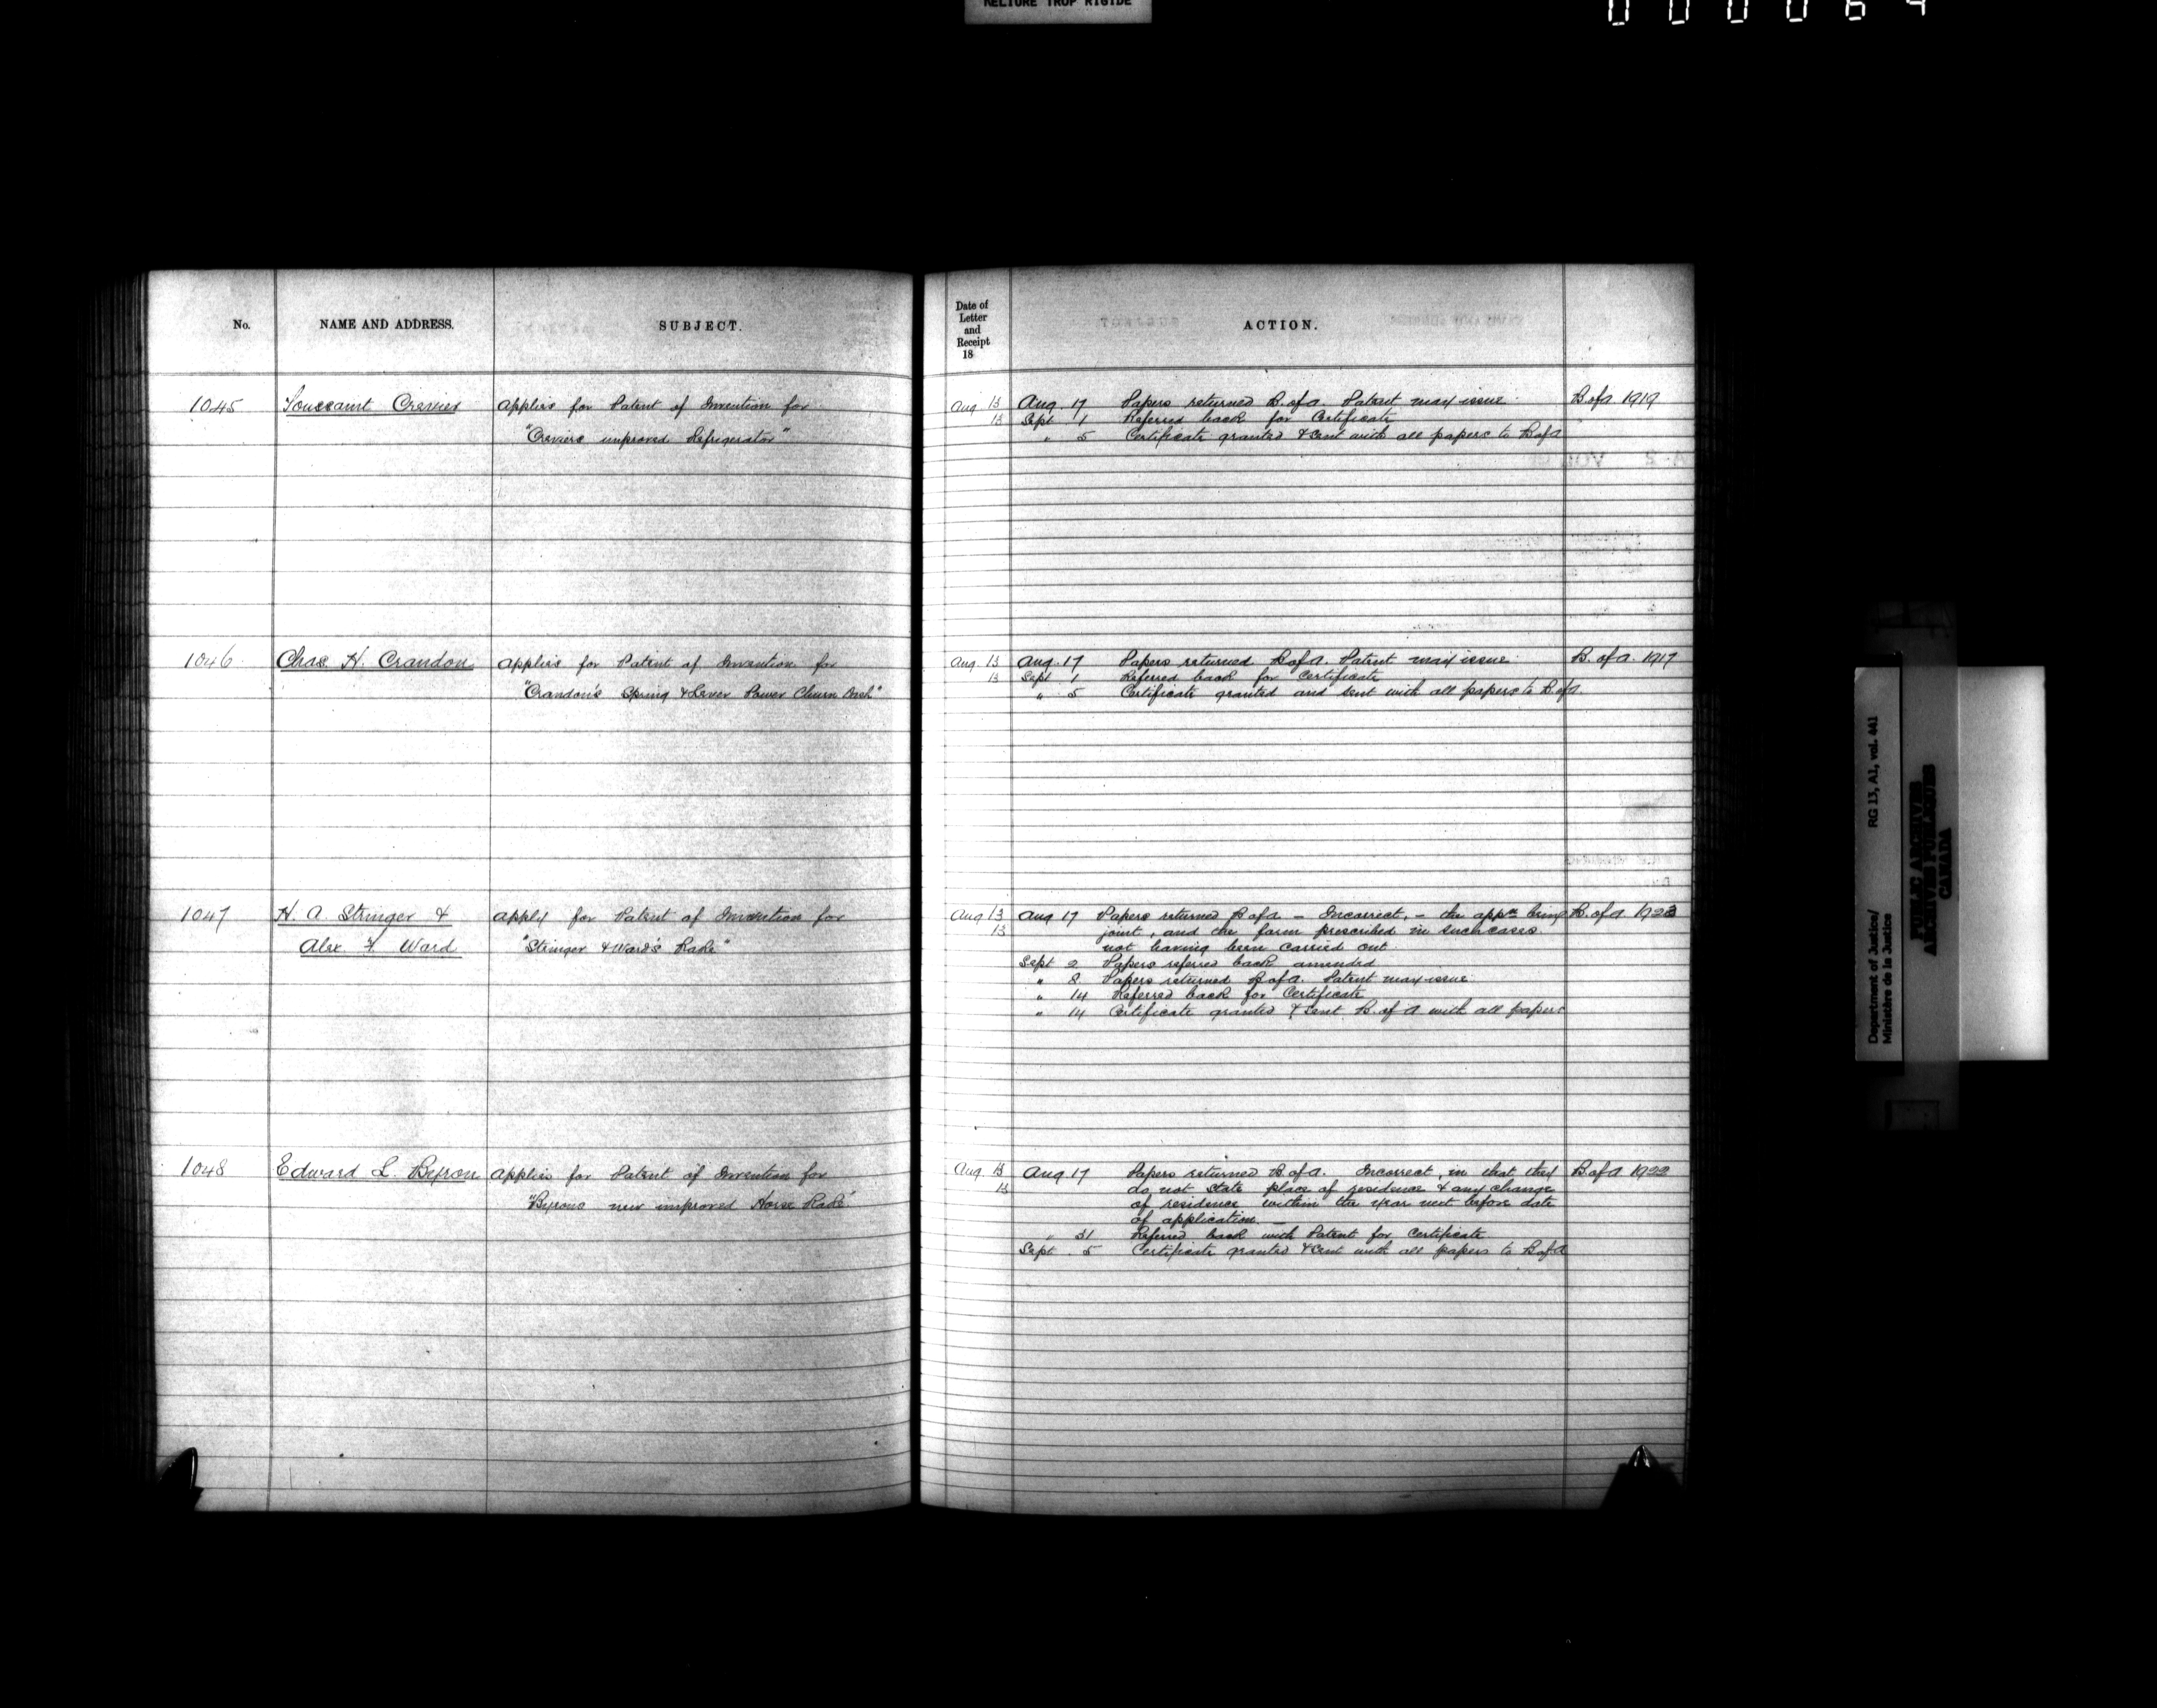 RELIURE TROP RIGIDE
000064
No. NAME AND ADDRESS. SUBJECT.
Date of
Letter
and
Receipt
18
ACTION.
1045 Toussaint Crevier Applies for Patent of Invention for
"Creviers improved Refrigerator"
Aug 13 Aug. 17 Papers returned B. of A. Patent may issue. B. of A 1919
13 Sept 1 Referred back for Certificate
" 5 Certificate granted & sent with all papers to B of A
1046 Chas. H. Crandon Applies for Patent of Invention for
"Crandon's Spring & Lever Power Churn Dash"
Aug. 13 Aug. 17 Papers returned B of A. Patent may issue B. of A. 1917
13 Sept 1 Referred back for Certificate
" 5 Certificate granted and sent with all papers to B. of A.
1047 H. A. Stringer &
Alex. F. Ward
Apply for Patent of Invention for
"Stringer & Ward's Rake"
Aug 13 Aug 17 Papers returned B of A – Incorrect, – the appn being B. of A 1923
13 joint, and the form prescribed in such cases
not having been carried out.
Sept 2 Papers referred back amended
" 8 Papers returned B of A Patent may issue
" 14 Referred back for Certificate
" 14 Certificate granted & sent B. of A with all papers
1048 Edward L. Beyron Applies for Patent of Invention for
"Byrons new improved Horse Rake"
Aug. 13 Aug 17 Papers returned B. of A. Incorrect, in that they B. of A 1922
13 do not state place of residence & any change
of residence within the year next before date
of application. –
" 31 Referred back with Patent for Certificate
Sept. 5 Certificate granted & sent with all papers to B of A
Department of Justice/ RG 13, A1, vol. 441
Ministère de la Justice
PUBLIC ARCHIVES
ARCHIVES PUBLIQUES
CANADA